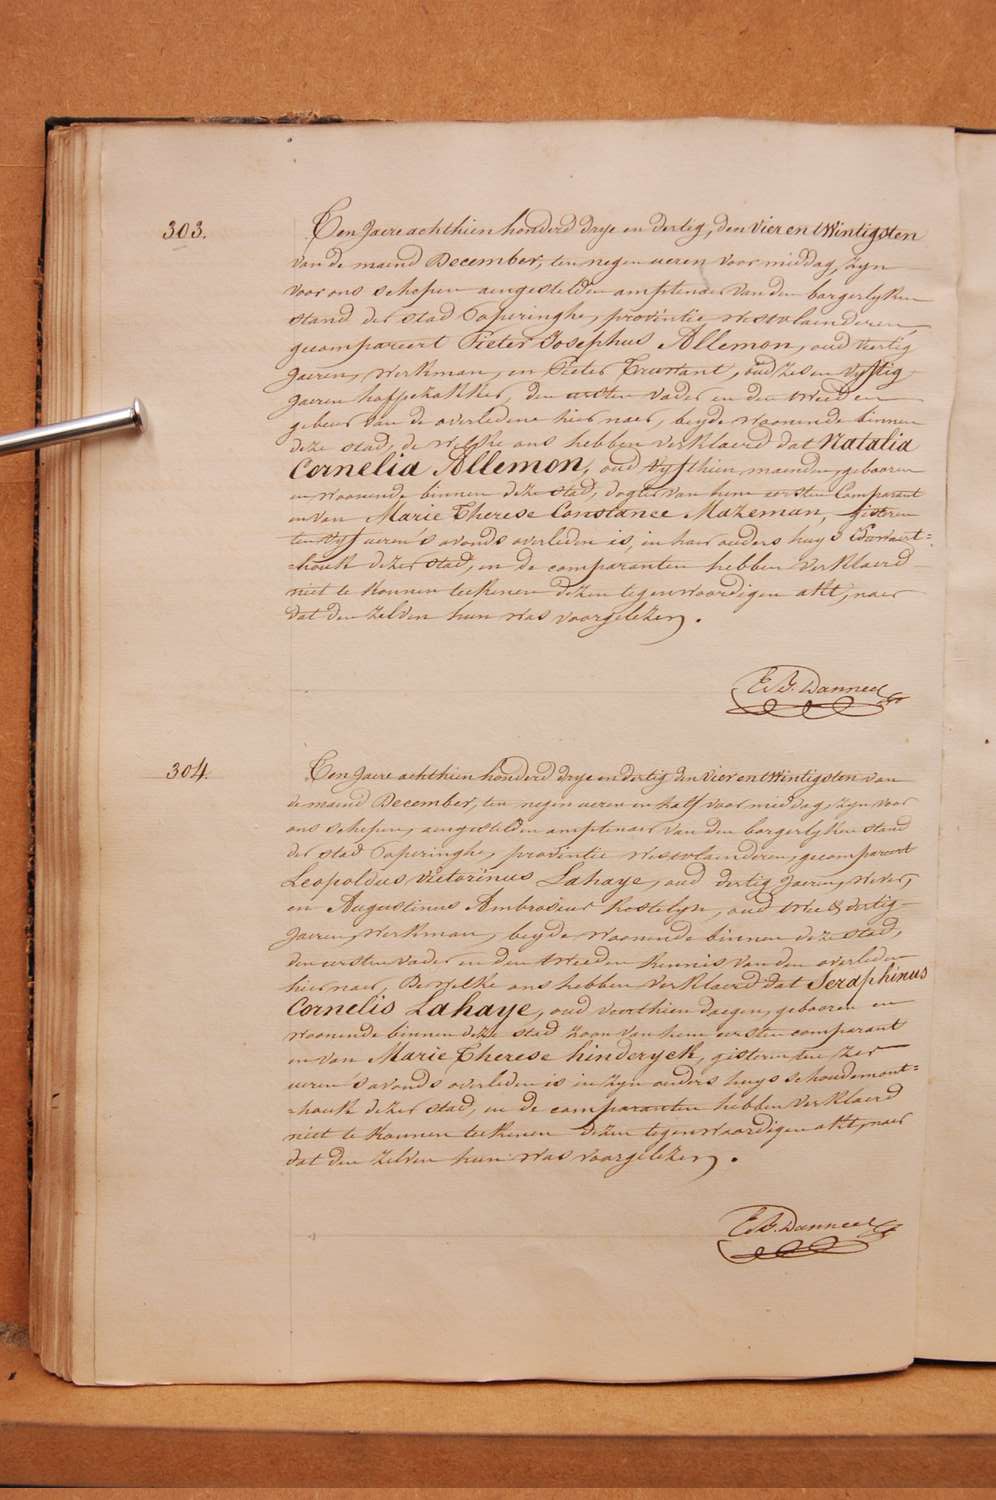 303.
Ten Jaere achthien honderd drye en dertig, den Vier en twintigsten
van de maend December, ten negen ueren voor middag, zyn
voor ons schepen aengestelden amptenaer van den borgerlyken
stand der stad Poperinghe, provintie westvlaenderen,
gecompareert Pieter Josephus Allemon, oud viertig
Jaeren, werkman, en Pieter Truwant, oud zes en vyftig
Jaeren hoppezakker, den eersten vader en den tweeden
gebuer van de overledene hier naer, beyde woonende binnen
deze stad, de welke ons hebben verklaerd dat Natalia
Cornelia Allemon, oud vyfthien maenden, gebooren
en woonende binnen deze stad, dogter van hem eersten Comparant
en van Marie Therese Constance Mazeman, gisteren
ten vyf ueren 's avonds overleden is, in haer ouders huys
-houk dezer stad, en de comparanten hebben verklaerd
niet te konnen teekenen dezen tegenwoordigen akt, naer
dat den zelven hun was voorgelezen.
E.B. Danneel
304.
Ten Jaere achthien honderd drye en dertig den vier en twintigsten van
de maend December, ten negen ueren en half voor middag, zyn voor
ons schepen, aengestelden amptenaer van den borgerlyken stand
der stad Poperinghe, provintie westvlaenderen, gecompareert
Leopoldus Victorinus Lahaye, oud dertig Jaeren, wever,
en Augustinus Ambrosius Kostelyn, oud twee & dertig
Jaeren, werkman, beyde woonende binnen deze stad,
den eersten vader en den tweeden kennis van den overleden
hier naer, De welke ons hebben verklaerd dat Seraphinus
Cornelis Lahaye, oud veerthien daegen, gebooren en
woonende binnen deze stad zoon van hem eersten comparant
en van Marie Therese hinderyck, gisteren ten zes
ueren 's avonds overleden is in zyn ouders huys schoudemont=
=houk dezer stad, en de comparanten hebben verklaerd
niet te konnen teekenen dezen tegenwoordigen akt, naer
dat den zelven hun was voorgelezen.
E.B. Danneel